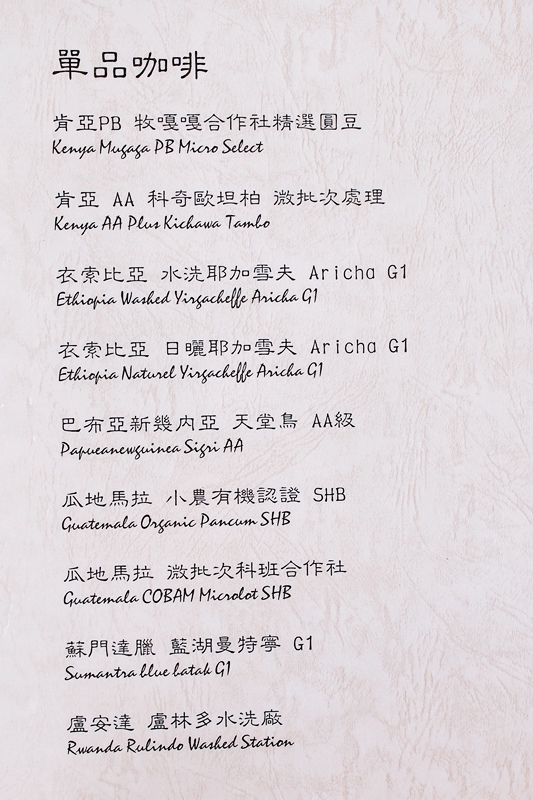 單品咖啡
肯亞PB 牧嘎嘎合作社精選圓豆
Kenya Mugaga PB Micro Select
肯亞 AA 科奇歐坦柏 微批次處理
Kenya AA Plus Kichawa Tambo
衣索比亞 水洗耶加雪夫 Aricha G1
Ethiopia Washed Yirgacheffe Aricha G1
衣索比亞 日曬耶加雪夫 Aricha G1
Ethiopia Naturel Yirgacheffe Aricha G1
巴布亞新幾內亞 天堂鳥 AA級
Papueanewguinea Sigri AA
瓜地馬拉 小農有機認證 SHB
Guatemala Organic Pancum SHB
瓜地馬拉 微批次科班合作社
Guatemala COBAM Microlot SHB
蘇門達臘 藍湖曼特寧 G1
Sumantra blue batak G1
盧安達 盧林多水洗廠
Rwanda Rulindo Washed Station